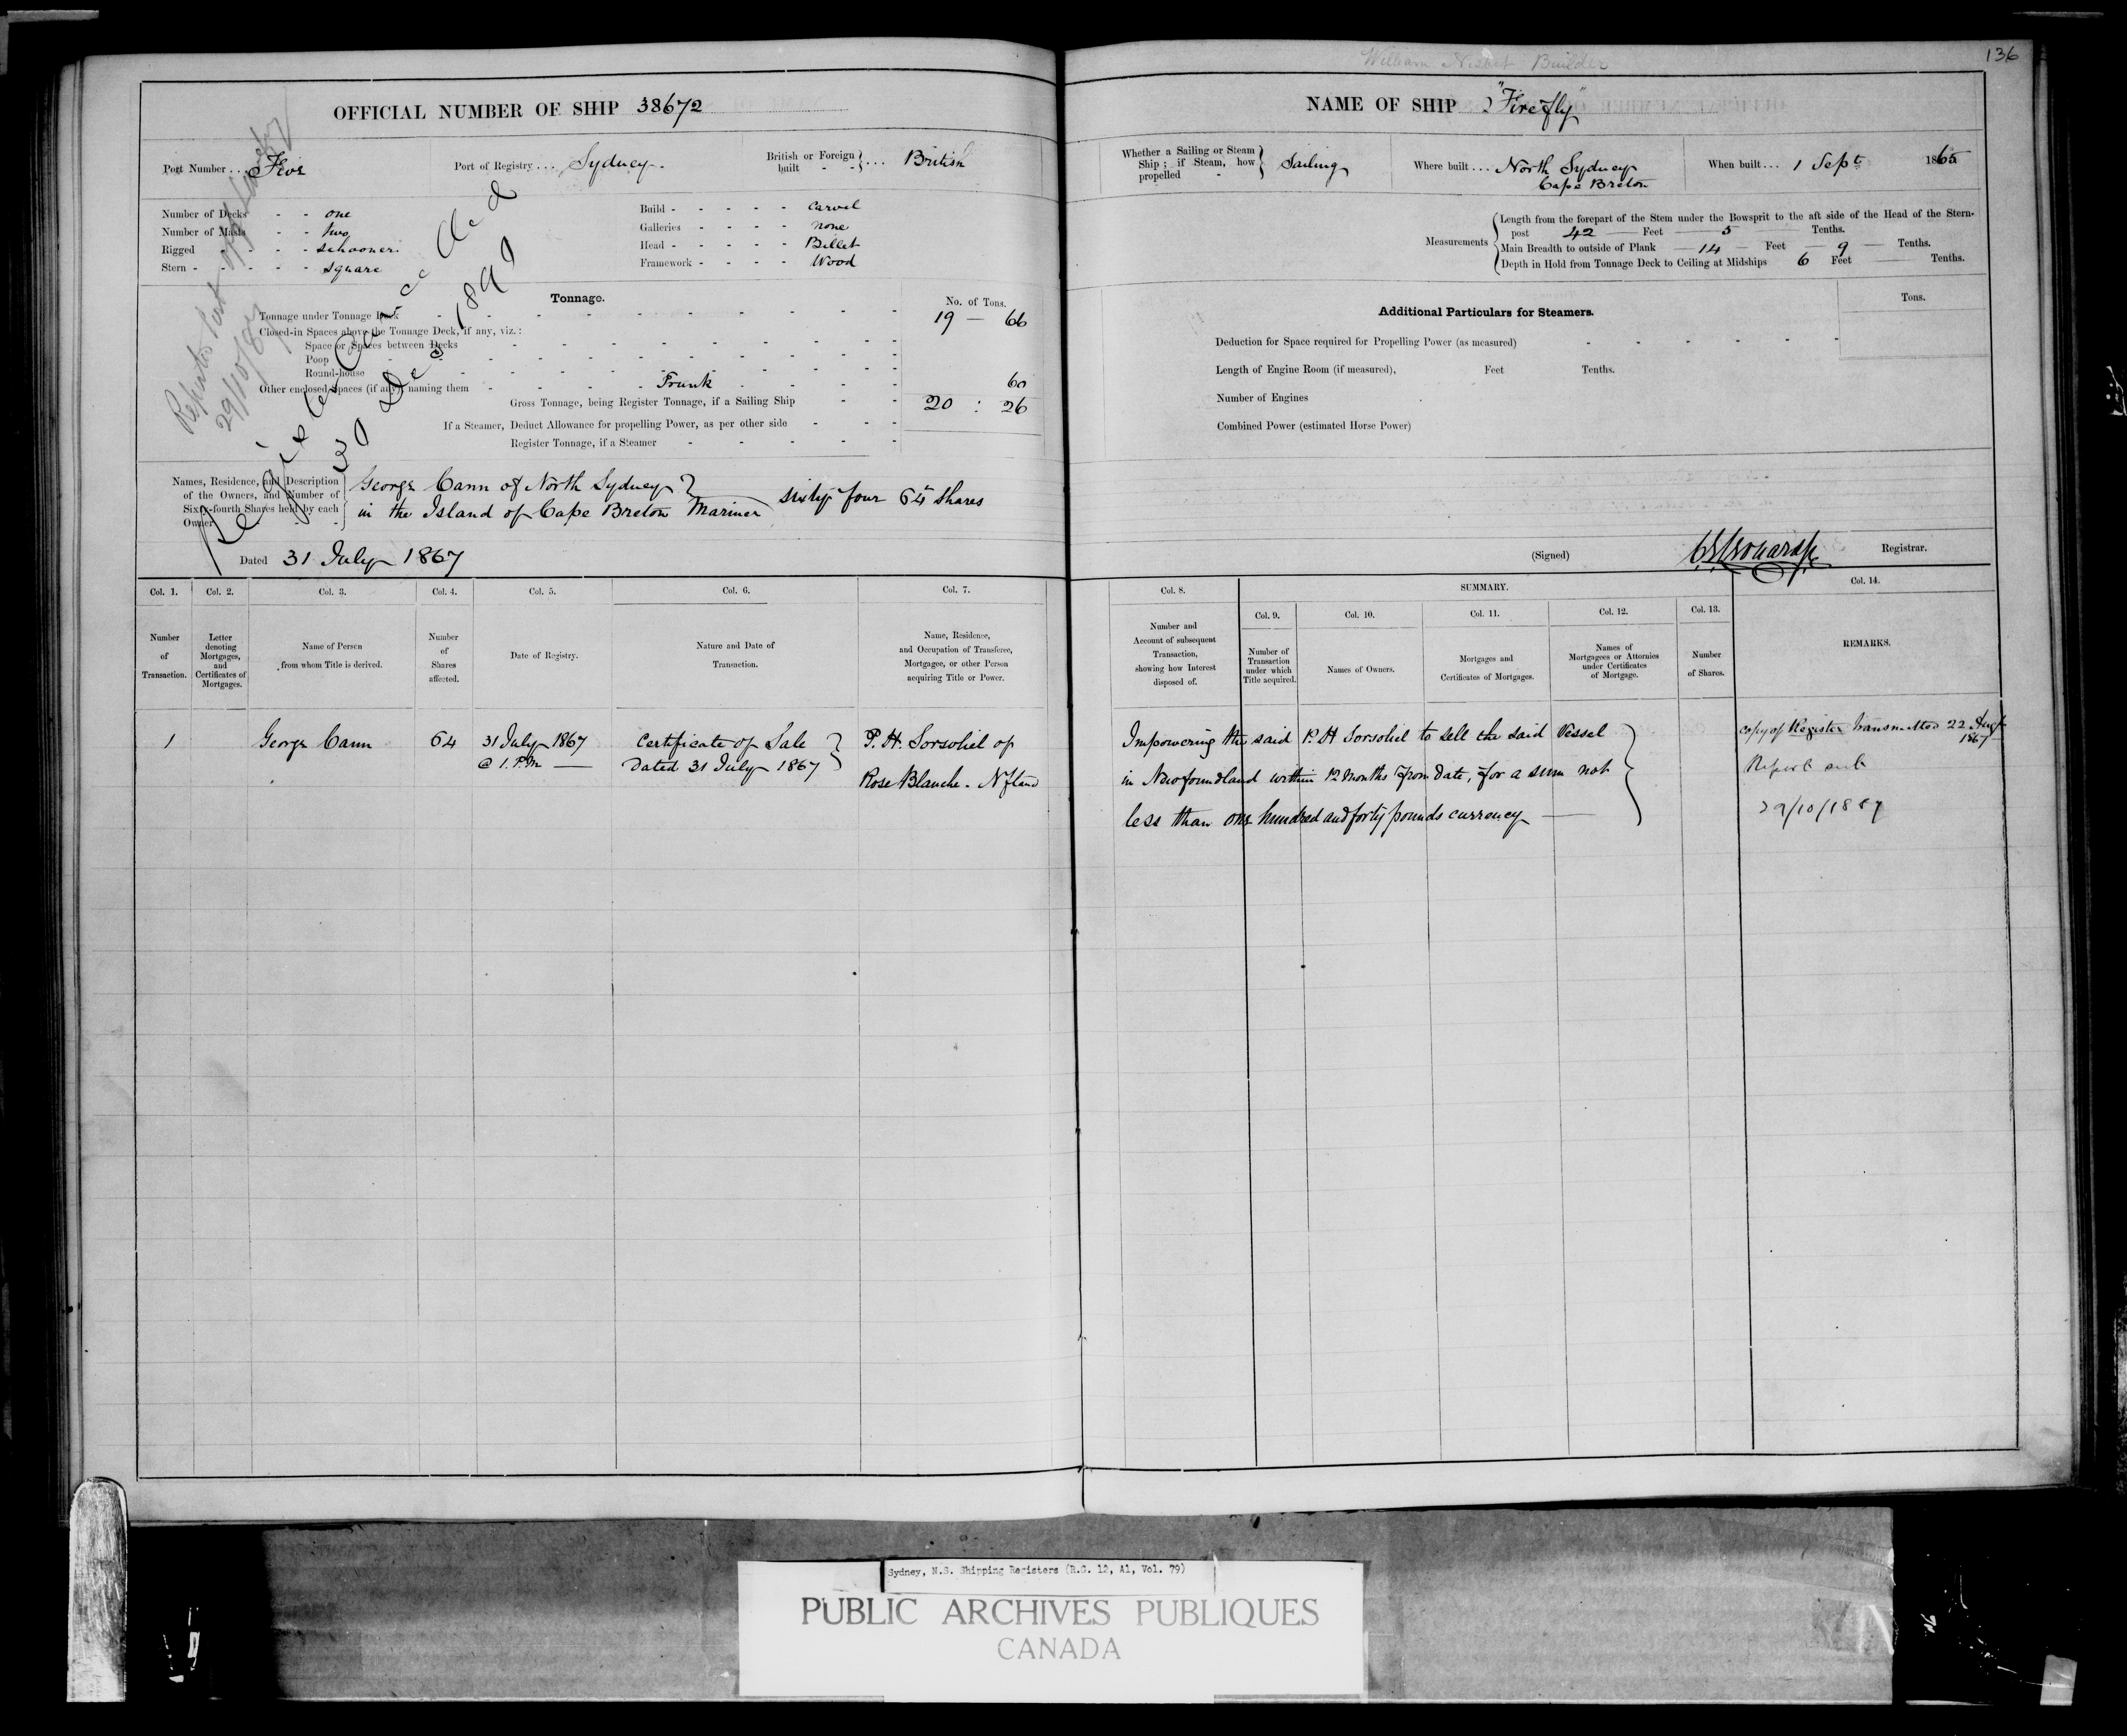 William Nisbet Builder
136
OFFICIAL NUMBER OF SHIP 38672
NAME OF SHIP "Firefly"
Port Number ... Five
Port of Registry .... Sydney.
British or Foreign built ... British
Whether a Sailing or Steam Ship; if Steam, how propelled - Sailing
Where built ... North Sydney
Cape Breton
When built ... 1 Sept 1865
Number of Decks - - one
Number of Masts - - two
Rigged - - - schooner.
Stern - - - - - square
Build - - - - - carvel
Galleries - - - - none
Head - - - - - Billet
Framework - - - - Wood
Measurements
Length from the forepart of the Stem under the Bowsprit to the aft side of the Head of the Stern-
post 42 Feet 5 Tenths.
Main Breadth to outside of Plank 14 Feet 9 Tenths.
Depth in Hold from Tonnage Deck to Ceiling at Midships 6 Feet Tenths.
Tonnage.
No. of Tons.
Tonnage under Tonnage Deck 19 — 66
Closed-in Spaces above the Tonnage Deck, if any, viz.:
Space or Spaces between Decks
Poop
Round-house
Other enclosed Spaces (if any), naming them - Trunk 60
Gross Tonnage, being Register Tonnage, if a Sailing Ship 20 : 26
If a Steamer, Deduct Allowance for propelling Power, as per other side
Register Tonnage, if a Steamer
Registry Closed
30 Dec 1890
29/10/87
Additional Particulars for Steamers.
Tons.
Deduction for Space required for Propelling Power (as measured)
Length of Engine Room (if measured), Feet Tenths.
Number of Engines
Combined Power (estimated Horse Power)
Names, Residence, and Description
of the Owners, and Number of
Sixty-fourth Shares held by each
Owner
George Cann of North Sydney
in the Island of Cape Breton Mariner
sixty four 64th shares
Dated 31 July 1867
(Signed)
Registrar.
Col. 1.
Number
of
Transaction.
Col. 2.
Letter
denoting
Mortgages,
and
Certificates of
Mortgages.
Col. 3.
Name of Person
from whom Title is derived.
Col. 4.
Number
of
Shares
affected.
Col. 5.
Date of Registry.
Col. 6.
Nature and Date of
Transaction.
Col. 7.
Name, Residence,
and Occupation of Transferee,
Mortgagee, or other Person
acquiring Title or Power.
Col. 8.
Number and
Account of subsequent
Transaction,
showing how Interest
disposed of.
SUMMARY.
Col. 9.
Number of
Transaction
under which
Title acquired.
Col. 10.
Names of Owners.
Col. 11.
Mortgages and
Certificates of Mortgages.
Col. 12.
Names of
Mortgagees or Attornies
under Certificates
of Mortgage.
Col. 13.
Number
of Shares.
Col. 14.
REMARKS.
1
George Cann
64
31 July 1867
@ 1. P.M
Certificate of Sale
Dated 31 July 1867
P. H. Sorsohiel of
Rose Blanche. Nfland
Impowering the said P. H Sorsohiel to sell the said Vessel
in Newfoundland within 12 months from date, for a sum not
less than one hundred and forty pounds currency
copy of Register transmitted 22 Augt
1867
Report sent
29/10/1887
Sydney, N.S. Shipping Registers (R.G. 12, A1, Vol. 79)
PUBLIC ARCHIVES PUBLIQUES
CANADA